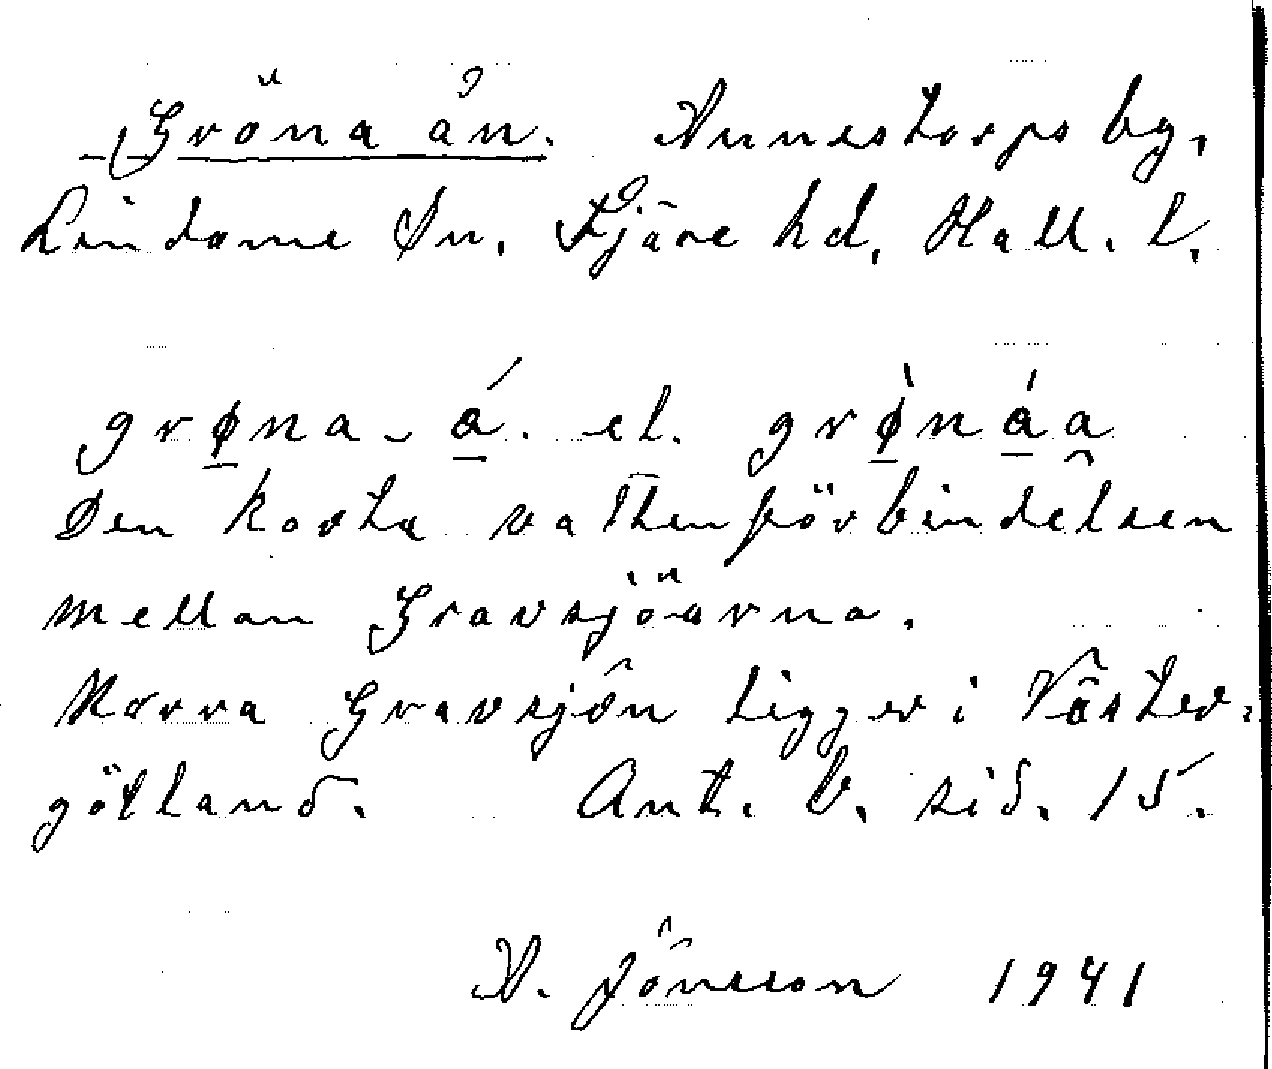 Gröna ån. Annestorps by,
Lindome sn. Fjäre hd, Hall. l.
grøna-á. el. grø̀náa
Den korta vattenförbindelsen
mellan Gravsjöarna.
Norra Gravsjön ligger i Väster-
götland. Ant. b. sid. 15.
A. Jönsson 1941